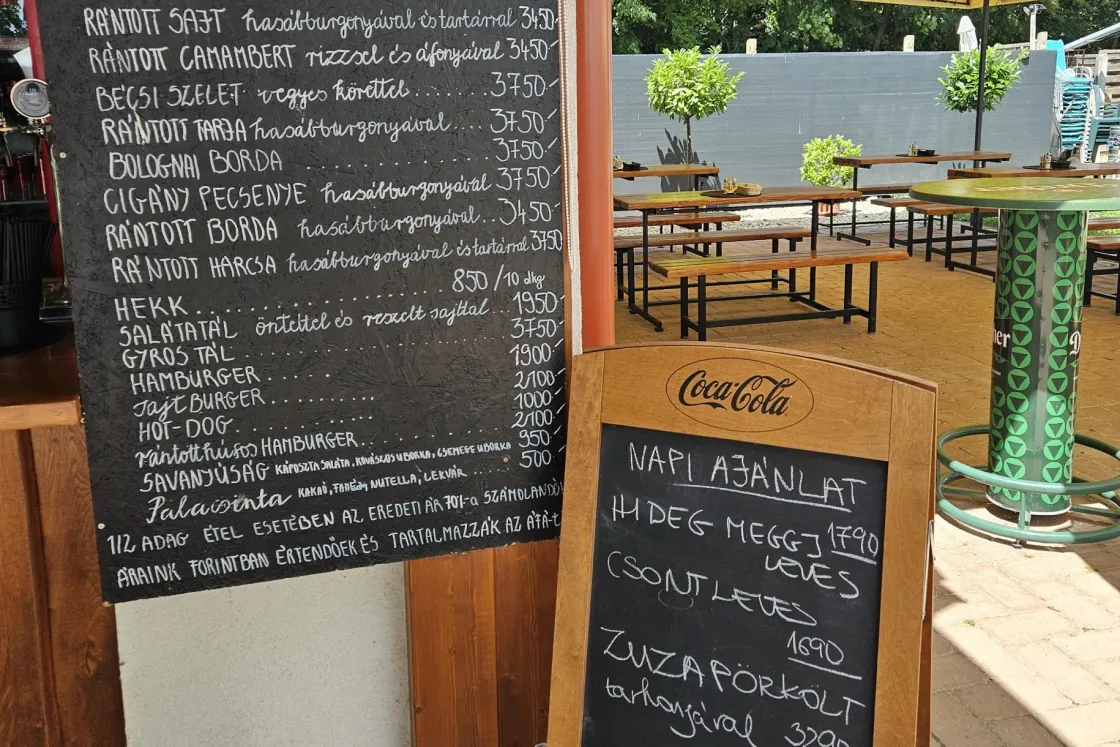 RÁNTOTT SAJT hasábburgonyával és tartárral 3450,-
RÁNTOTT CAMAMBERT rizzsel és áfonyával 3450,-
BÉCSI SZELET vegyes körettel.... 3750,-
RÁNTOTT TARJA hasábburgonyával.... 3750,-
BOLOGNAI BORDA .................. 3750,-
CIGÁNY PECSENYE hasábburgonyával 3750,-
RÁNTOTT BORDA hasábburgonyával... 3450,-
RÁNTOTT HARCSA hasábburgonyával és tartárral 3750
HEKK .................. 850/10 dkg
SALÁTATÁL öntettel és reszelt sajttal.... 1950,-
GYROS TÁL .................. 3750,-
HAMBURGER .................. 1900,-
SAJT BURGER .................. 2100,-
HOT-DOG .................. 1000,-
rántotthúsos HAMBURGER .......... 2100,-
SAVANYÚSÁG KÁPOSZTA SALÁTA, KOVÁSZOS UBORKA, CSEMEGE UBORKA 950,-
Palacsinta KAKAÓ, FAHÉJ, NUTELLA, LEKVÁR 500,-
1/2 ADAG ÉTEL ESETÉBEN AZ EREDETI ÁR 70%-a SZÁMOLANDÓ!
ÁRAINK FORINTBAN ÉRTENDŐEK ÉS TARTALMAZZÁK AZ ÁFÁ-t
Coca-Cola
NAPI AJÁNLAT
HIDEG MEGGY 1790
LEVES
CSONTLEVES
1690
ZUZAPÖRKÖLT
tarhonyával 3790